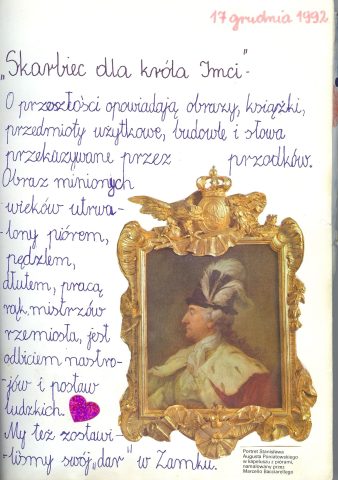 17 grudnia 1992
"Skarbiec dla króla Imci"-
O przeszłości opowiadają obrazy, książki,
przedmioty użytkowe, budowle i słowa
przekazywane przez przodków.
Obraz minionych
wieków utrwa-
-lony piórem,
pędzlem,
dłutem, pracą
rąk mistrzów
rzemiosła, jest
odbiciem nastro-
jów i postaw
ludzkich.
My też zostawi-
-liśmy swój "dar" w Zamku.
Portret Stanisława
Augusta Poniatowskiego
w kapeluszu z piórami,
namalowany przez
Marcello Bacciarellego